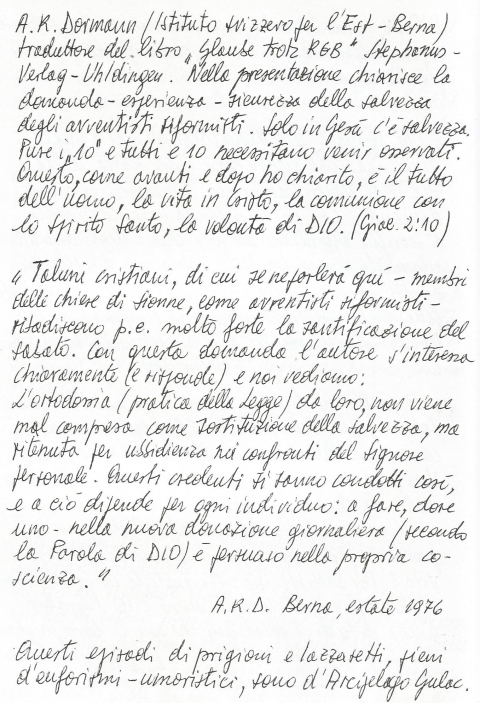 A.R. Dormann (Istituto svizzero per l'Est - Berna)
traduttore del libro „Glaube trotz KGB" Stephanus-
Verlag - Uhldingen. Nella presentazione chiarisce la
domanda - esperienza - sicurezza della salvezza
degli avventisti riformisti. Solo in Gesù c'è salvezza.
Pure i „10" e tutti e 10 necessitano venir osservati.
Questo, come avanti e dopo ho chiarito, é il tutto
dell'uomo, la vita in Cristo, la comunione con
lo Spirito Santo, la volontà di DIO. (Giac. 2:10)
„ Taluni cristiani, di cui se ne parlerá quí - membri
delle chiese di Sionne, come avventisti riformisti -
ribadiscono p.e. molto forte la santificazione del
sabato. Con questa domanda l'autore s'interessa
chiaramente (e risponde) e noi vediamo:
L'ortodossia (pratica della Legge) da loro, non viene
mal compresa come sostituzione della salvezza, ma
ritenuta per ubbidienza nei confronti del Signore
personale. Questi credenti si sanno condotti cosí,
e a ciò dipende per ogni individuo: a fare, dove
uno - nella nuova donazione giornaliera (secondo
la Parola di DIO) é persuaso nella propria co-
scienza."
A.R.D. Berna, estate 1976
Questi episodi di prigioni e lazzaretti, pieni
d'euforismi - umoristici, sono d'Arcipelago Gulac.